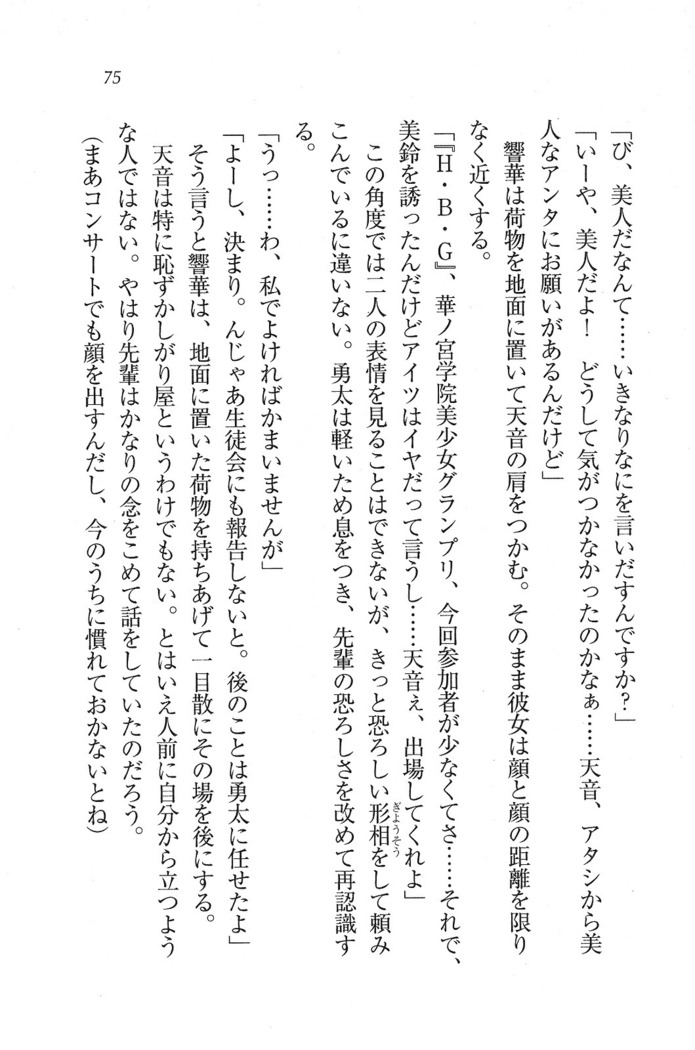 75
「び、美人だなんて……いきなりなにを言いだすんですか？」
「いーや、美人だよ！　どうして気がつかなかったのかなぁ……天音、アタシから美
人なアンタにお願いがあるんだけど」
　響華は荷物を地面に置いて天音の肩をつかむ。そのまま彼女は顔と顔の距離を限り
なく近くする。
「『H・B・G』、華ノ宮学院美少女グランプリ、今回参加者が少なくてさ……それで、
美鈴を誘ったんだけどアイツはイヤだって言うし……天音ぇ、出場してくれよ」
　この角度では二人の表情を見ることはできないが、きっと恐ろしい形相をして頼み
ぎようそう
こんでいるに違いない。勇太は軽いため息をつき、先輩の恐ろしさを改めて再認識す
る。
「うっ……わ、私でよければかまいませんが」
「よーし、決まり。んじゃあ生徒会にも報告しないと。後のことは勇太に任せたよ」
　そう言うと響華は、地面に置いた荷物を持ちあげて一目散にその場を後にする。
　天音は特に恥ずかしがり屋というわけでもない。とはいえ人前に自分から立つよう
な人ではない。やはり先輩はかなりの念をこめて話をしていたのだろう。
（まあコンサートでも顔を出すんだし、今のうちに慣れておかないとね）